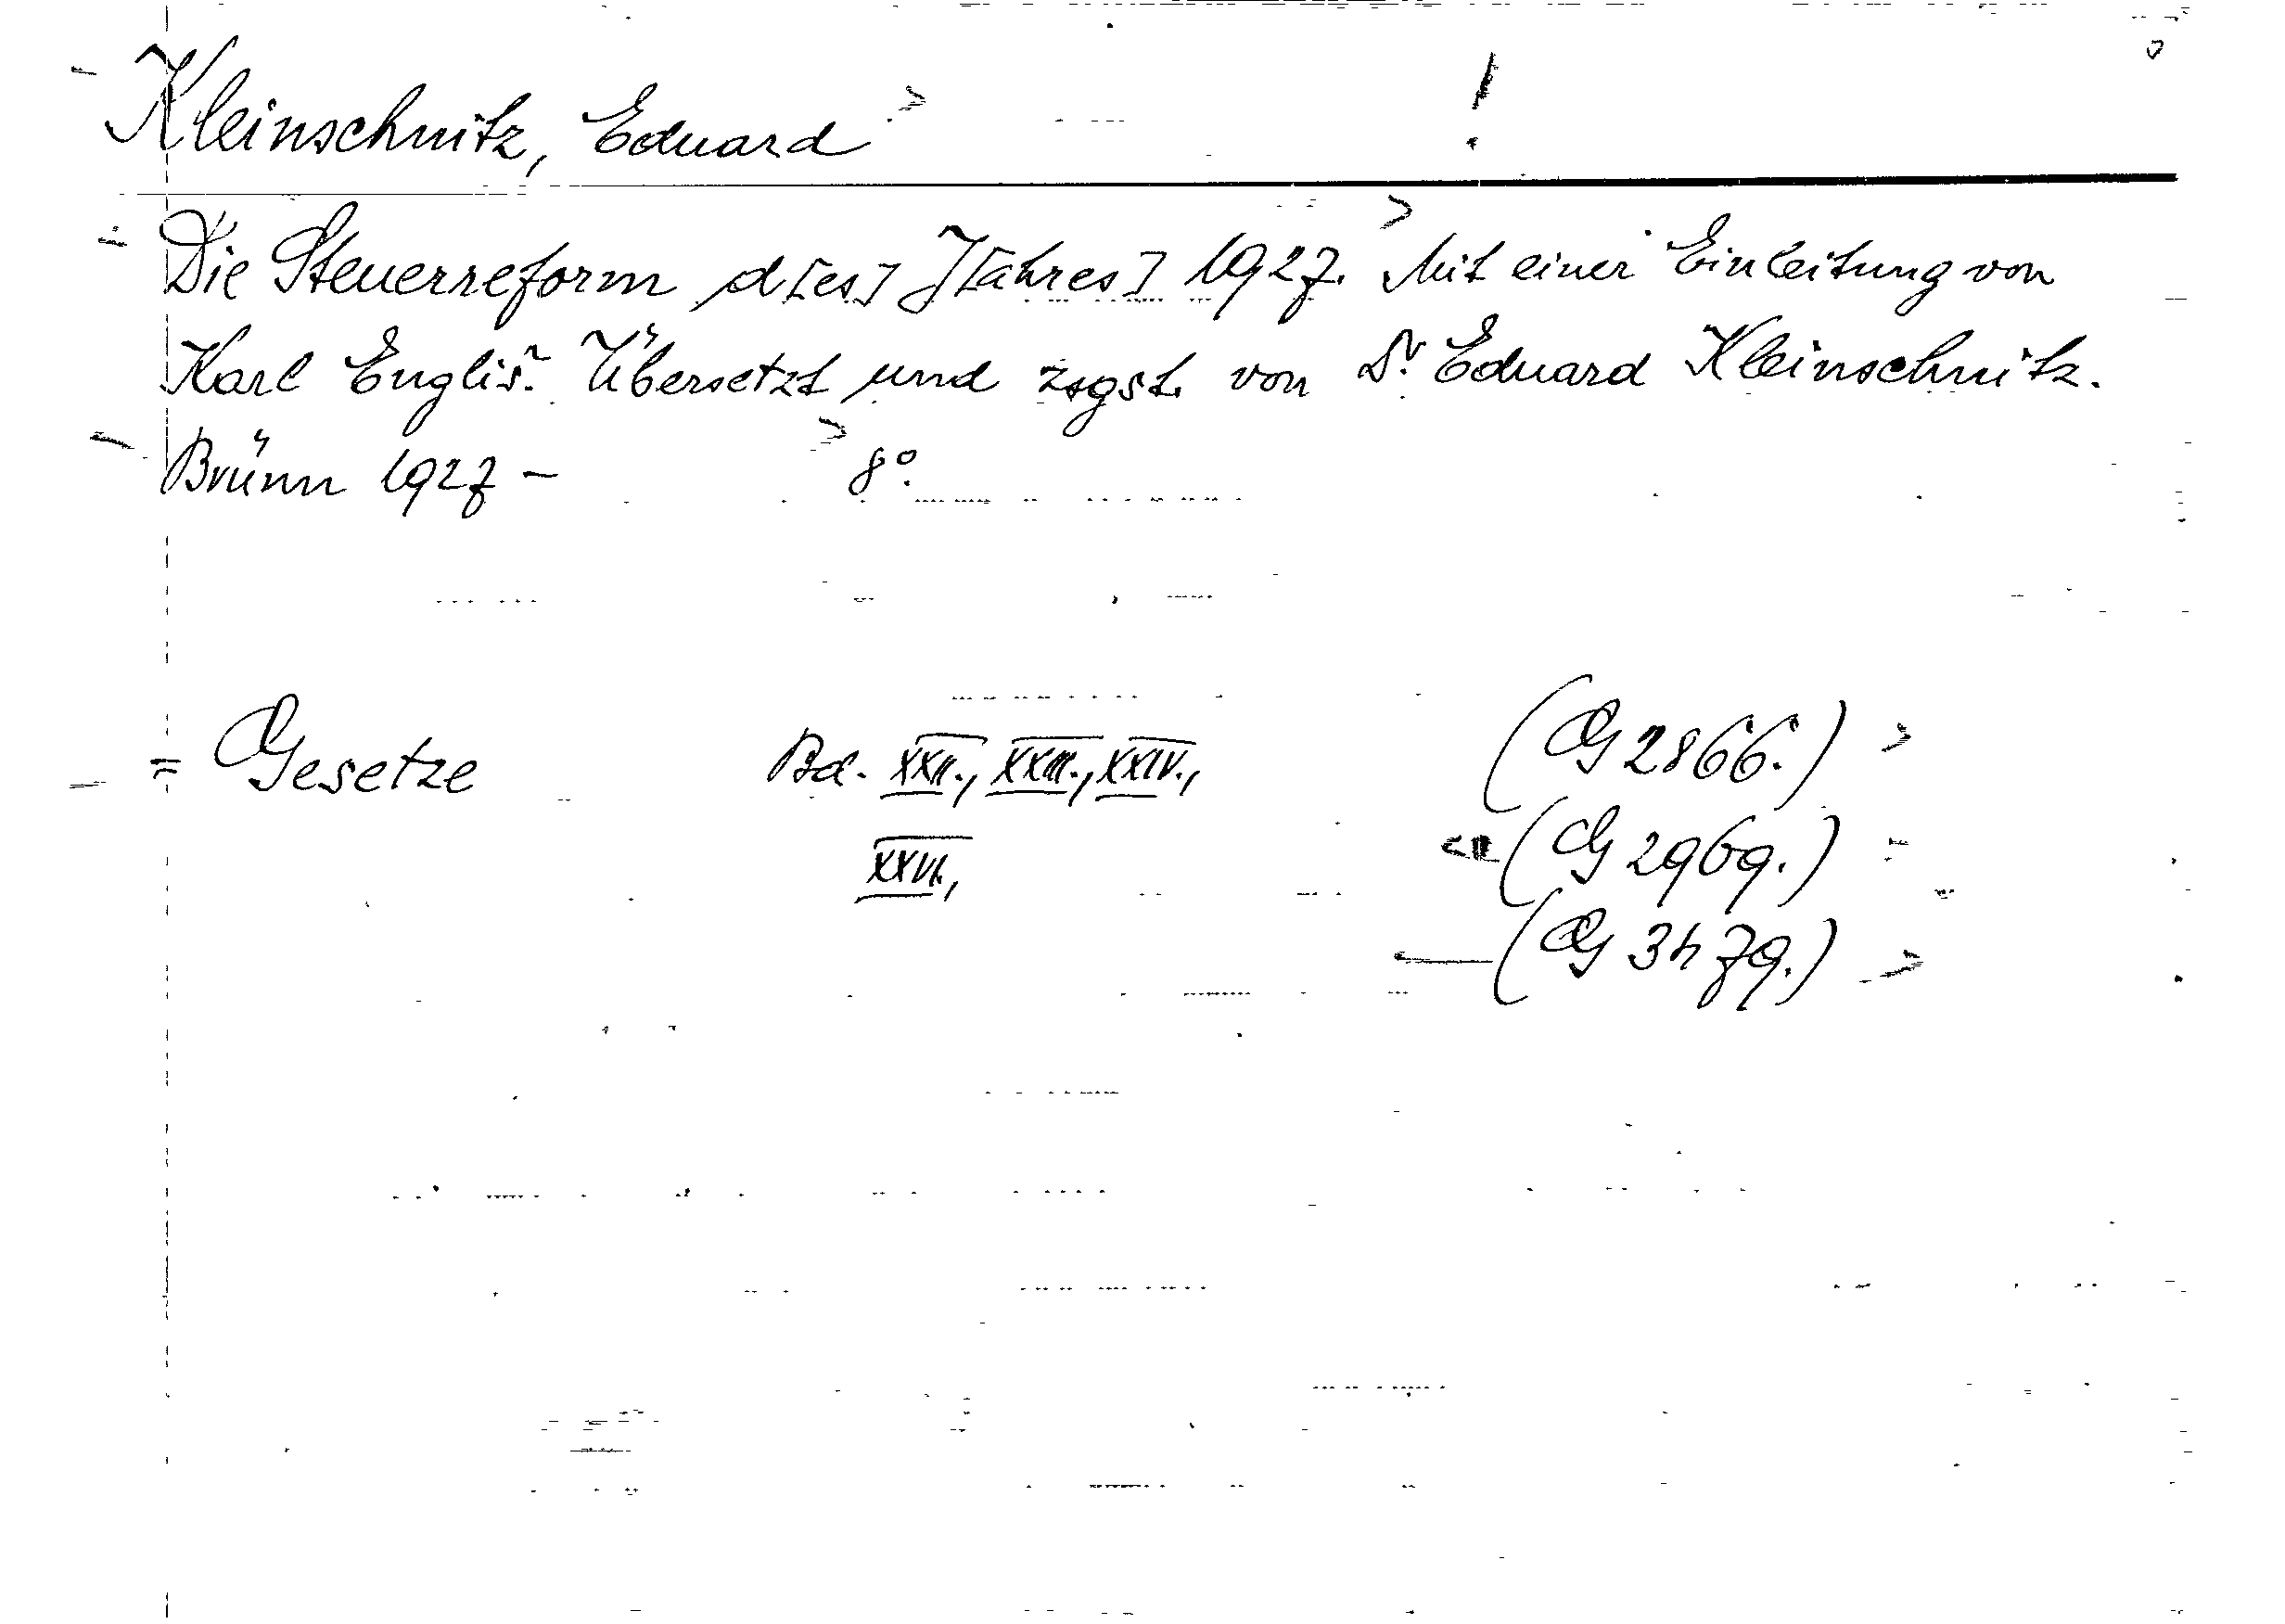 Kleinschnitz, Eduard !
Die Steuerreform d[es] J[ahres] 1927. Mit einer Einleitung von
Karl Engliš. Übersetzt und zsgst. von Dr. Eduard Kleinschnitz.
Brünn 1927 - 8°.
= Gesetze Bd. XXII., XXIII., XXIV., (G 2866.)
XXVI., (G 2969.)
(G 3479.)